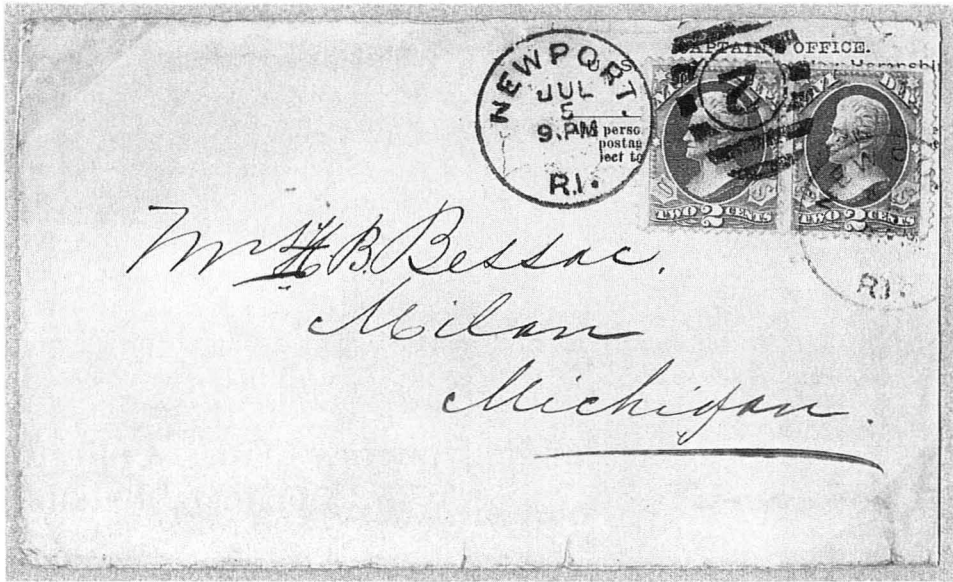 CAPTAIN'S OFFICE.
U S
NEWPORT.
JUL
5
9 PM
R.I.
perso
postag
ject to
2
TWO 2 CENTS
TWO 2 CENTS
R.I.
Mr H. B. Bessac.
Milan
Michigan.